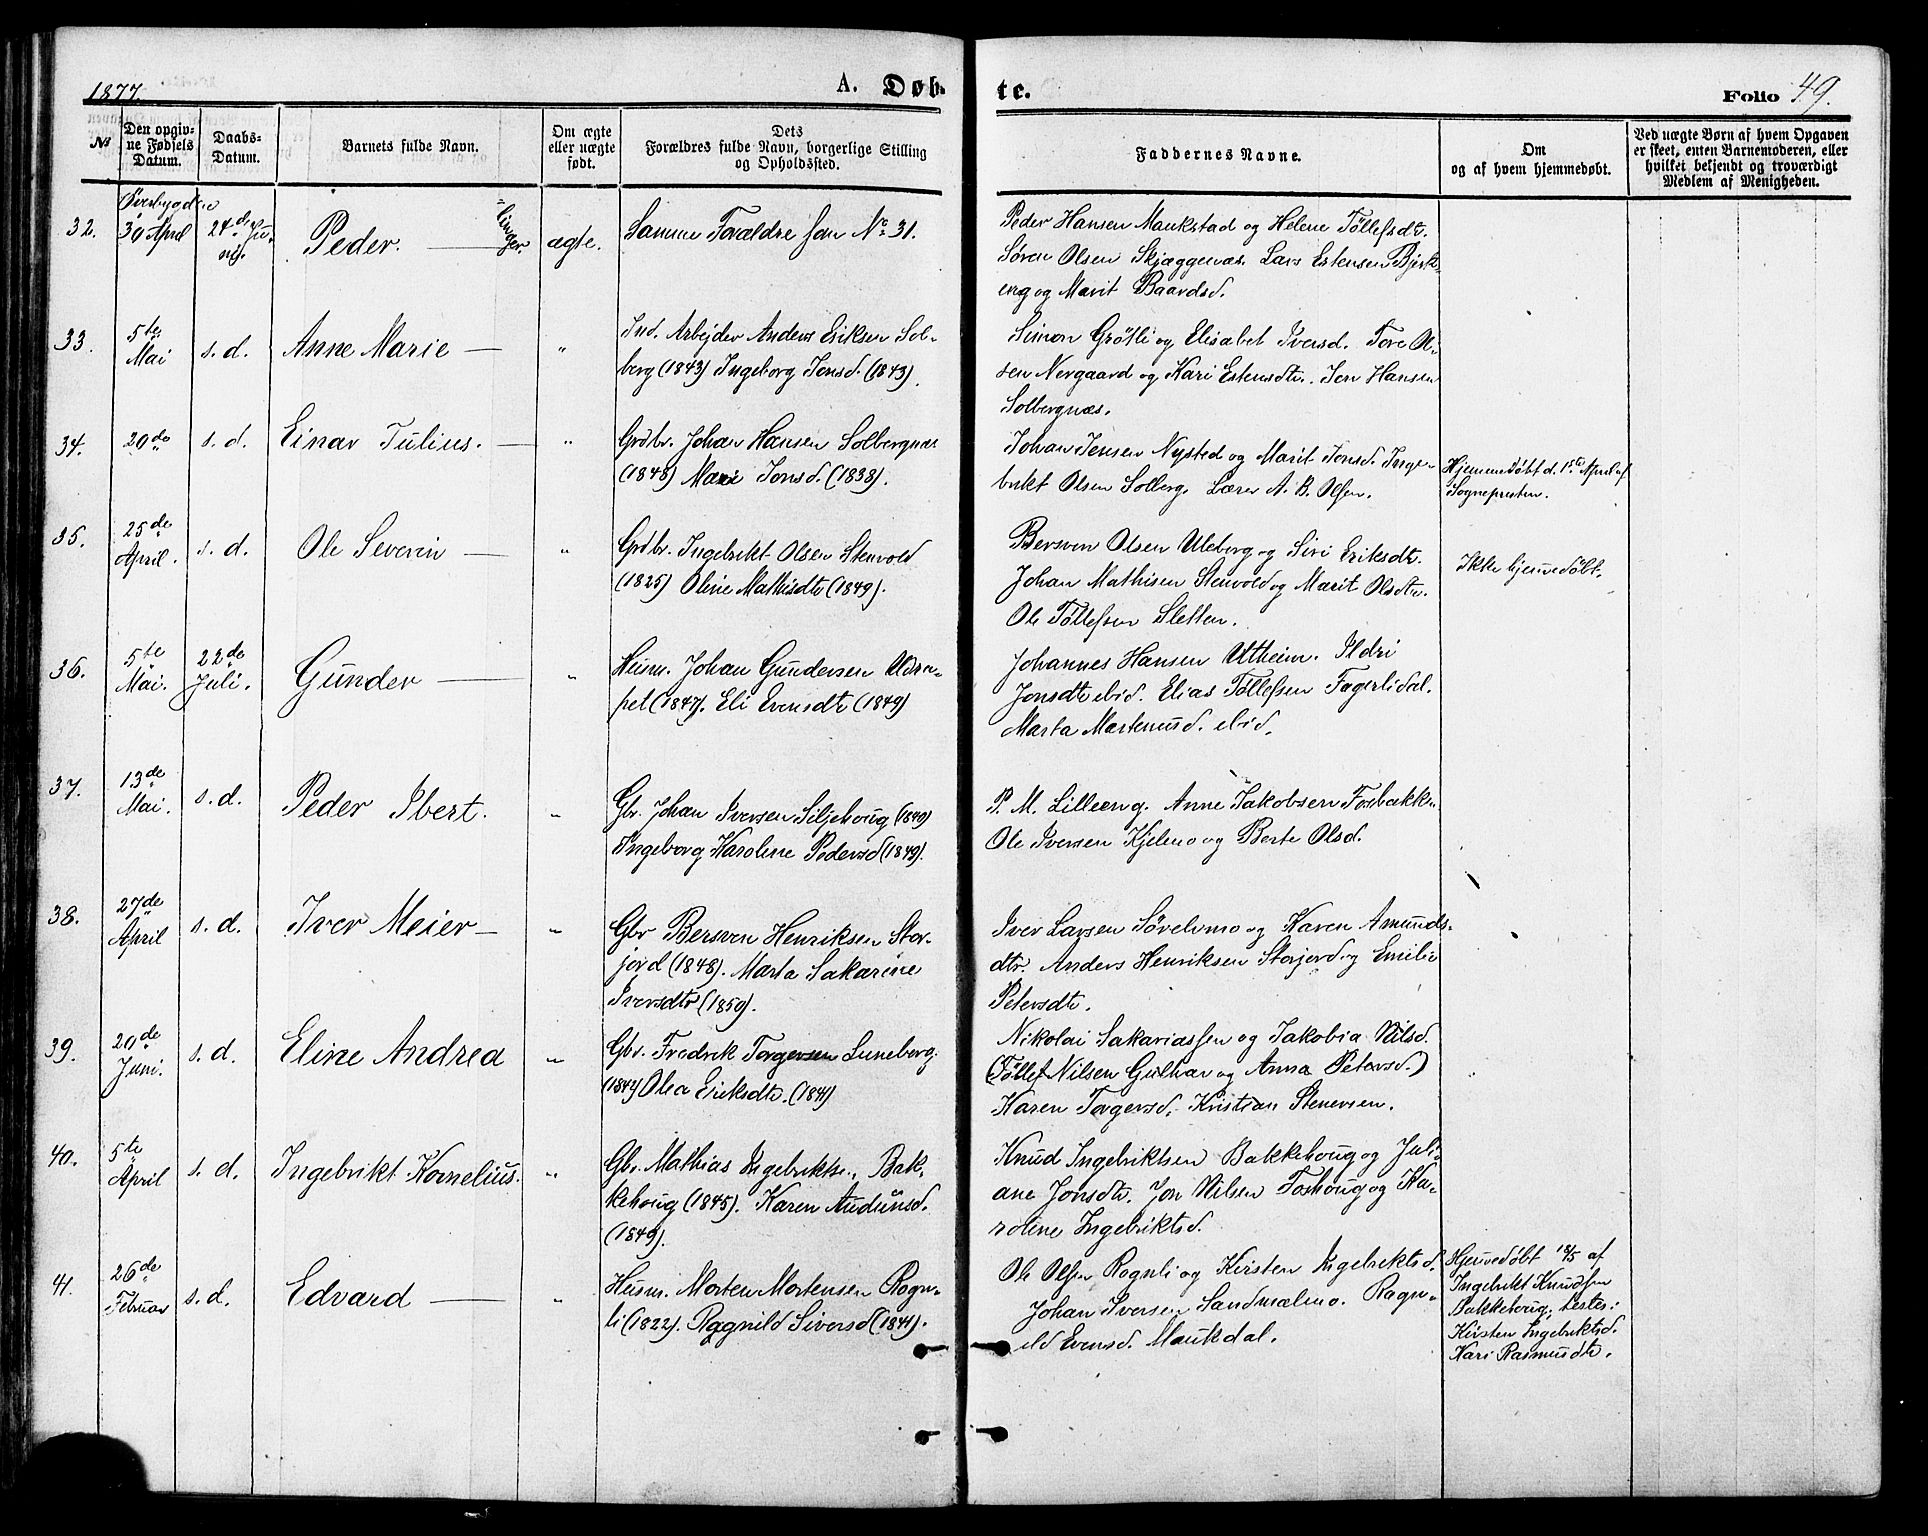 1877.
A. Døb-
te.
Folio 49.
№
Den opgiv-
ne Fødsels
Datum.
Daabs-
Datum.
Barnets fulde Navn.
Om ægte
eller uægte
født.
Dets
Forældres fulde Navn, borgerlige Stilling
og Opholdssted.
Faddernes Navne.
Om
og af hvem hjemmedøbt.
Ved uægte Børn af hvem Opgaven
er skeet, enten Barnemoderen, eller
hvilket bekjendt og troværdigt
Medlem af Menigheden.
Øverbygden
32.
30 April
24de Ju-
ni.
Peder.
ægte.
Samme Forældre som No 31.
Peder Hansen Maukstad og Helene Töllefsdt.
Søren Olsen Skjæggenæs. Lars Estensen Bjerk-
eng og Marit Baardsd.
33.
5te
Mai
s. d.
Anne Marie
"
Ind. Arbejder Anders Eriksen Sol-
berg (1843) Ingeborg Jonsd. (1843).
Simon Grötli og Elisabet Iversd. Tore Ol-
sen Nergaard og Kari Estensdtr. Jon Hansen
Solbergnæs.
34.
20de
s. d.
Einar Julius.
"
Grdbr. Johan Hansen Solbergnæs
(1848) Marie Jonsd. (1838).
Johan Jensen Nysted og Marit Jonsd. Inge-
brikt Olsen Solberg. Lærer A. B. Olsen.
Hjemmedøbt d. 1ste April af
Sognepresten.
35.
25de
April.
s. d.
Ole Severin
"
Grdbr. Ingebrikt Olsen Stenvold
(1825) Oline Mathisdtr (1849).
Bersven Olsen Uleberg og Siri Eriksdtr.
Johan Mathisen Stenvold og Marit Olsdtr.
Ole Töllefsen Sletten.
Ikke hjemmedøbt.
36.
5te
Mai.
22de
Juli.
Gunder
"
Husm. Johan Gundersen
(1847). Eli Evensdtr (1849)
Johannes Hansen Uttheim. Ildri
Jonsdtr ibid. Elias Töllefsen Fagerlidal.
Marta Martenusd. ibid.
37.
13de
Mai.
s. d.
Peder Ibert.
"
Gbr. Johan Iversen Siljehoug (1849)
Ingeborg Karoline Pedersd (1849).
P. M. Lilleeng. Anne Jakobsen Fosbakken.
Ole Iversen Kjelmo og Berte Olsd.
38.
27de
April
s. d.
Iver Meier
"
Gbr Bersven Henriksen Stor-
jord (1848). Marta Sakarine
Iversdtr (1850).
Iver Larsen Sörelvmo og Karen Amunds-
dtr. Anders Henriksen Storjord og Emilie
Petersdtr.
39.
20de
Juni.
s. d.
Eline Andrea
"
Gbr. Fredrik Torgersen Luneborg.
(1842) Olea Eriksdtr. (1841)
Nikolai Sakariassen og Jakobia Nilsd.
(Töllef Nilsen Gulhav og Anna Petersd.)
Karen Torgersd. Kristian Stenersen.
40.
5te
April
s. d.
Ingebrikt Kornelius.
"
Gbr. Mathias Ingebriktsen. Bak-
kehoug (1845). Karen Audunsd.
(1849).
Knud Ingebriktsen Bakkehoug og Juli-
ane Jonsdtr. Jon Nilsen Foshoug og Ka-
roline Ingebriktsd.
41.
26de
Februar
s. d.
Edvard
"
Husm. Morten Mortensen Rogn-
li (1822). Raggnild Siversd (1841).
Ole Olsen Rognli og Kirsten Ingebriktsd.
Johan Iversen Sandmælmo. Ragn-
ild Evensd. Maukdal.
Hjemmedøbt 18/5 af
Ingebrikt Knudsen
Bakkehoug; testes:
Kirsten Ingebriktsd.
Kari Rasmusdtr.